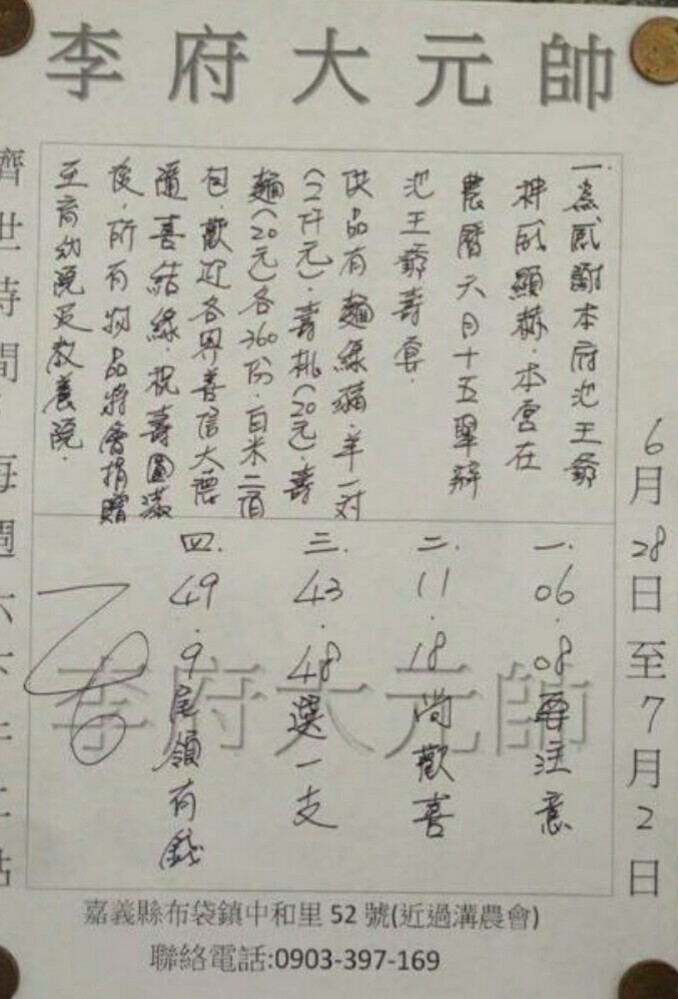 李府大元帥
6月28日至7月2日
一.為感謝本府池王爺
神威顯赫.本宮在
農曆六月十五舉辦
池王爺壽宴.
供品有麵線豬.羊一對
(2仟元).壽桃(20元).壽
麵(20元)各360份.白米二百
包.歡迎各界善信大德
隨喜結緣.祝壽圓滿
後.所有物品將會捐贈
至育幼院及教養院.
一.06.08要注意
二.11.18尚歡喜
三.43.48選一支
四.49.9尾領有錢
李府大元帥
濟世時間:每週六下午二點
嘉義縣布袋鎮中和里52號(近過溝農會)
聯絡電話:0903-397-169